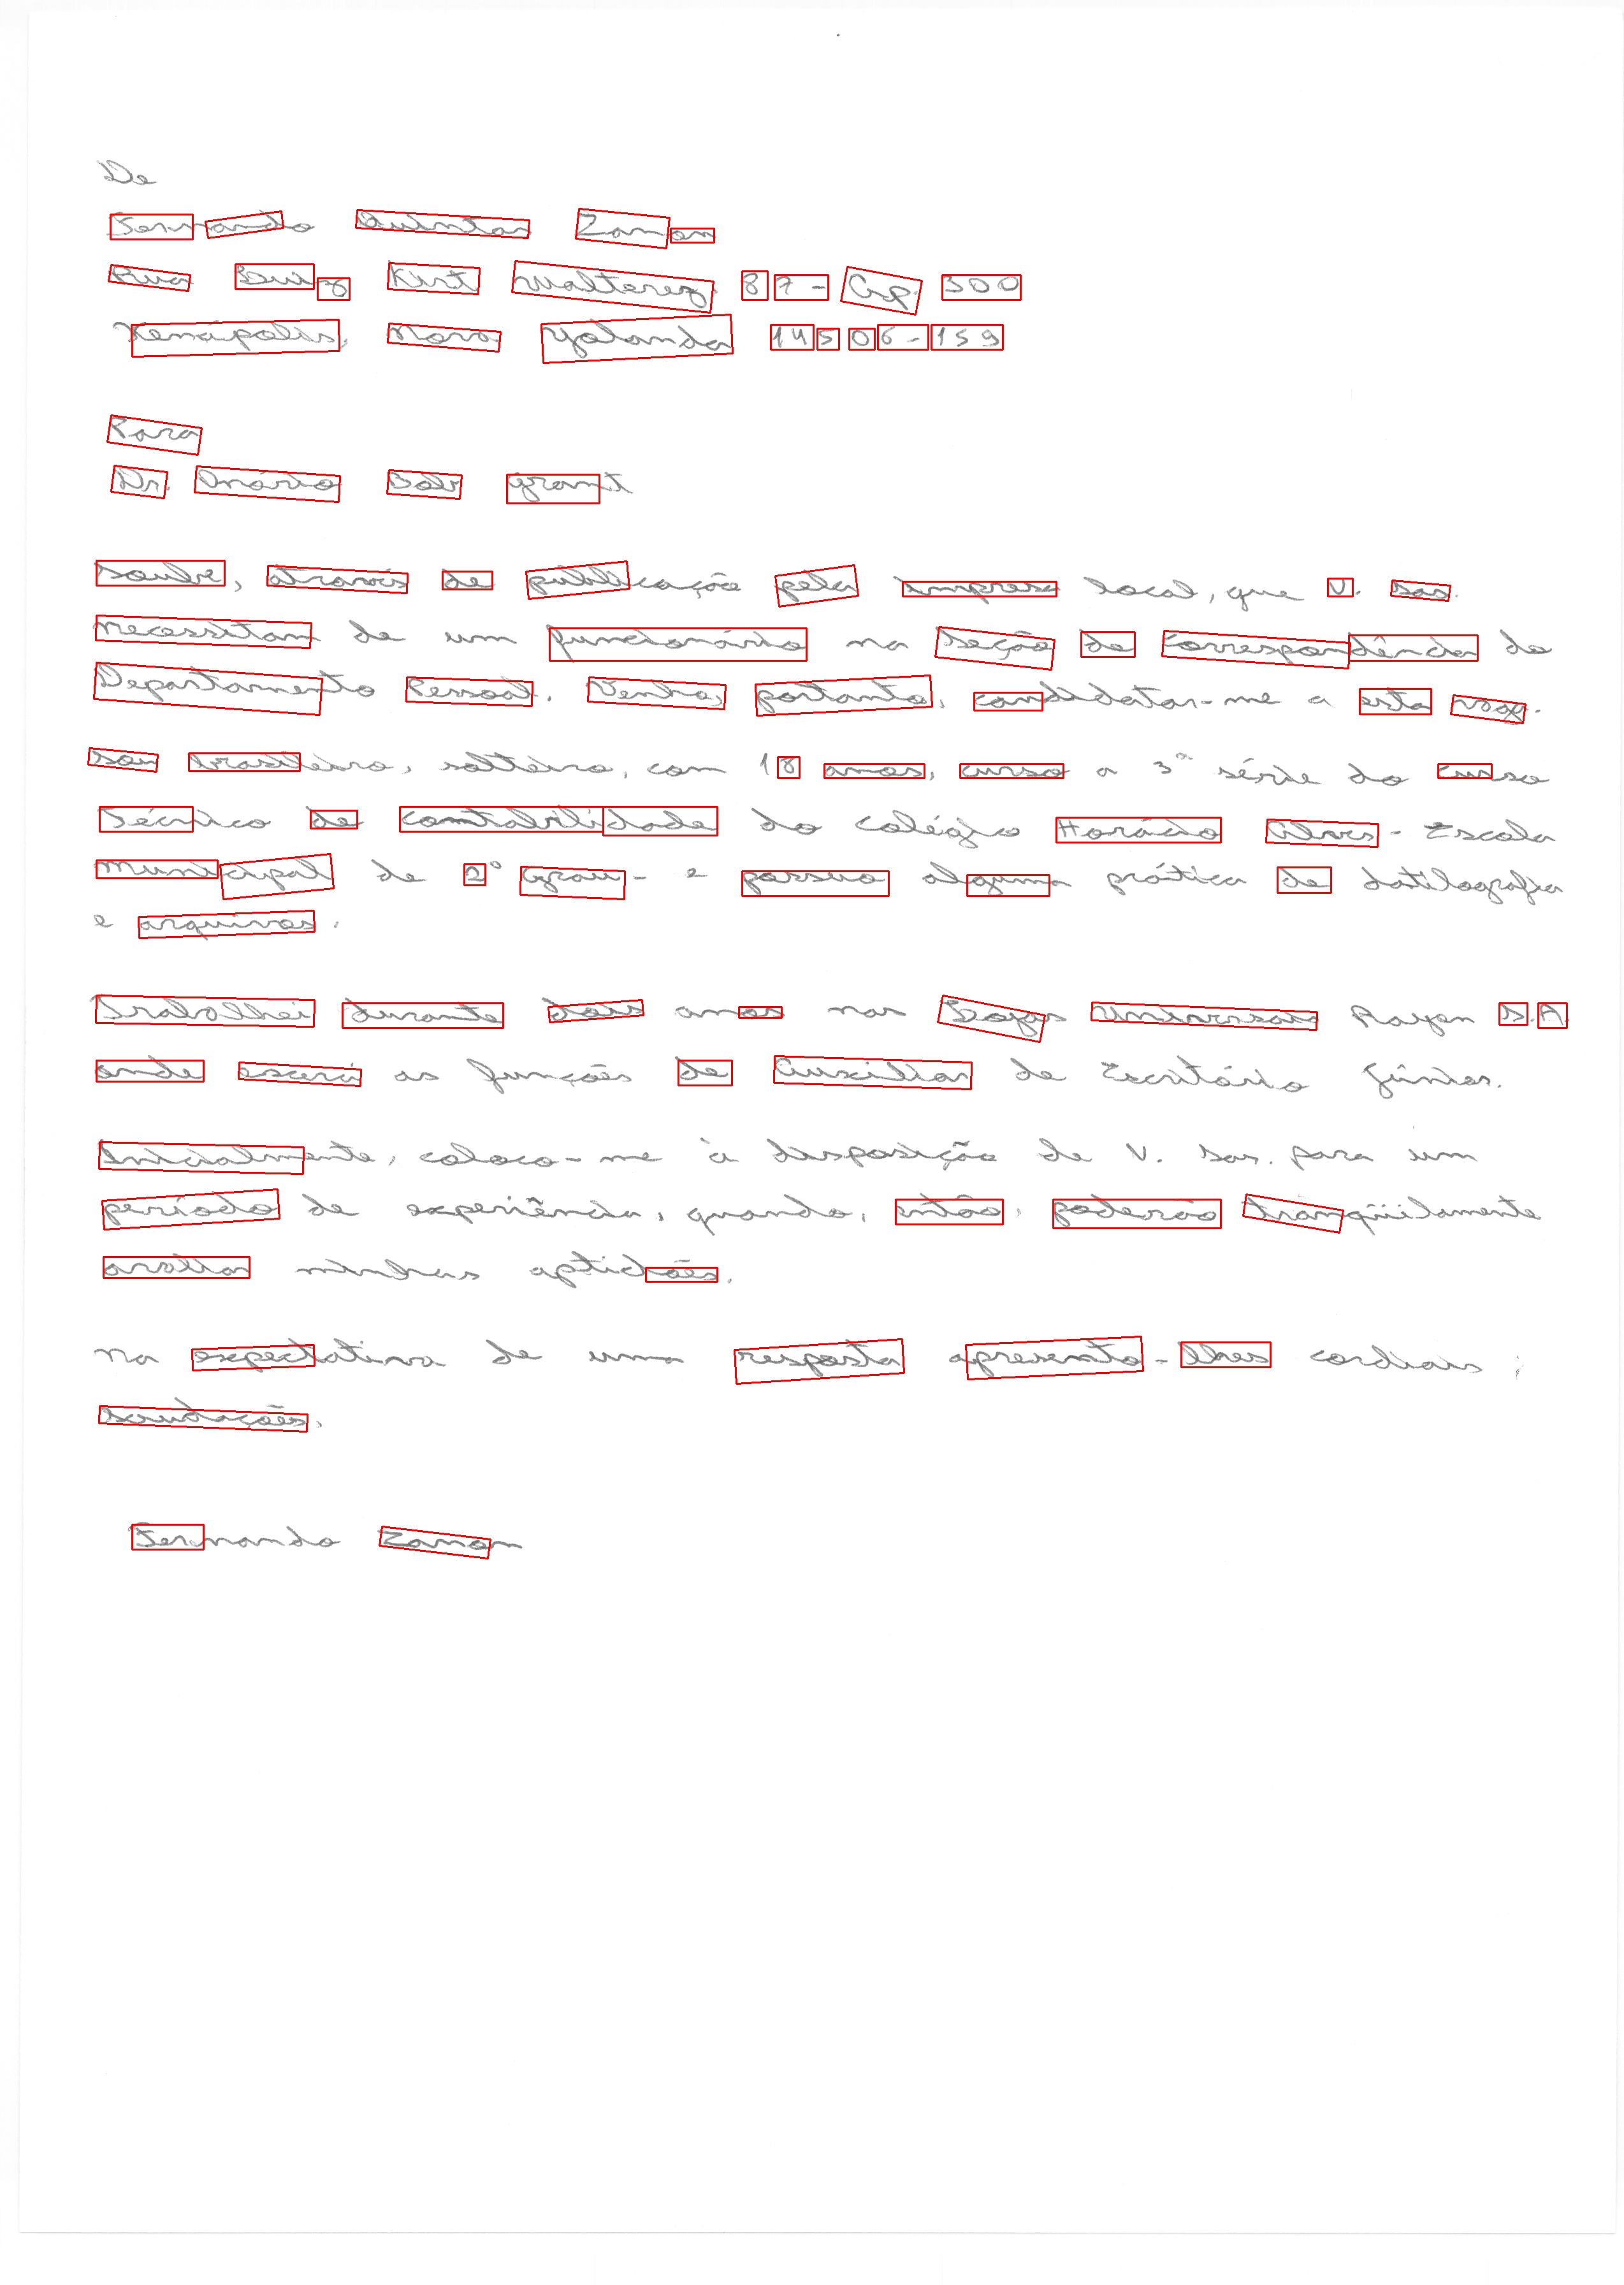 De
Fernando Quintas Zanon
Rua Buiz Kirt Walterez, 87 - Cep. 300
Xenápolis, Nova Yolanda 14506-159
Para
Dr. Onário Balv Grant
Soube, através de publicação pela impresa local, que V. Sas.
necessitam de um funcionário na seção de correspondência do
Departamento Pessoal. Venho, portanto, candidatar-me a esta vaga.
Sou brasileiro, solteiro, com 18 anos, curso a 3ª série do curso
Técnico de contabilidade do colégio Horácio Alves - Escola
Municipal de 2º Grau - e possuo alguma prática de datilografia
e arquivos.
Trabalhei durante dois anos nas Universais Rayon S.A.
onde exerci as funções de Auxiliar de Escritório Júnior.
Inicialmente, coloco-me à disposição de V. Sas. para um
período de experiência, quando, então, poderão tranqüilamente
avaliar minhas aptidões.
Na expectativa de uma resposta apresento-lhes cordiais
saudações.
Fernando Zanon